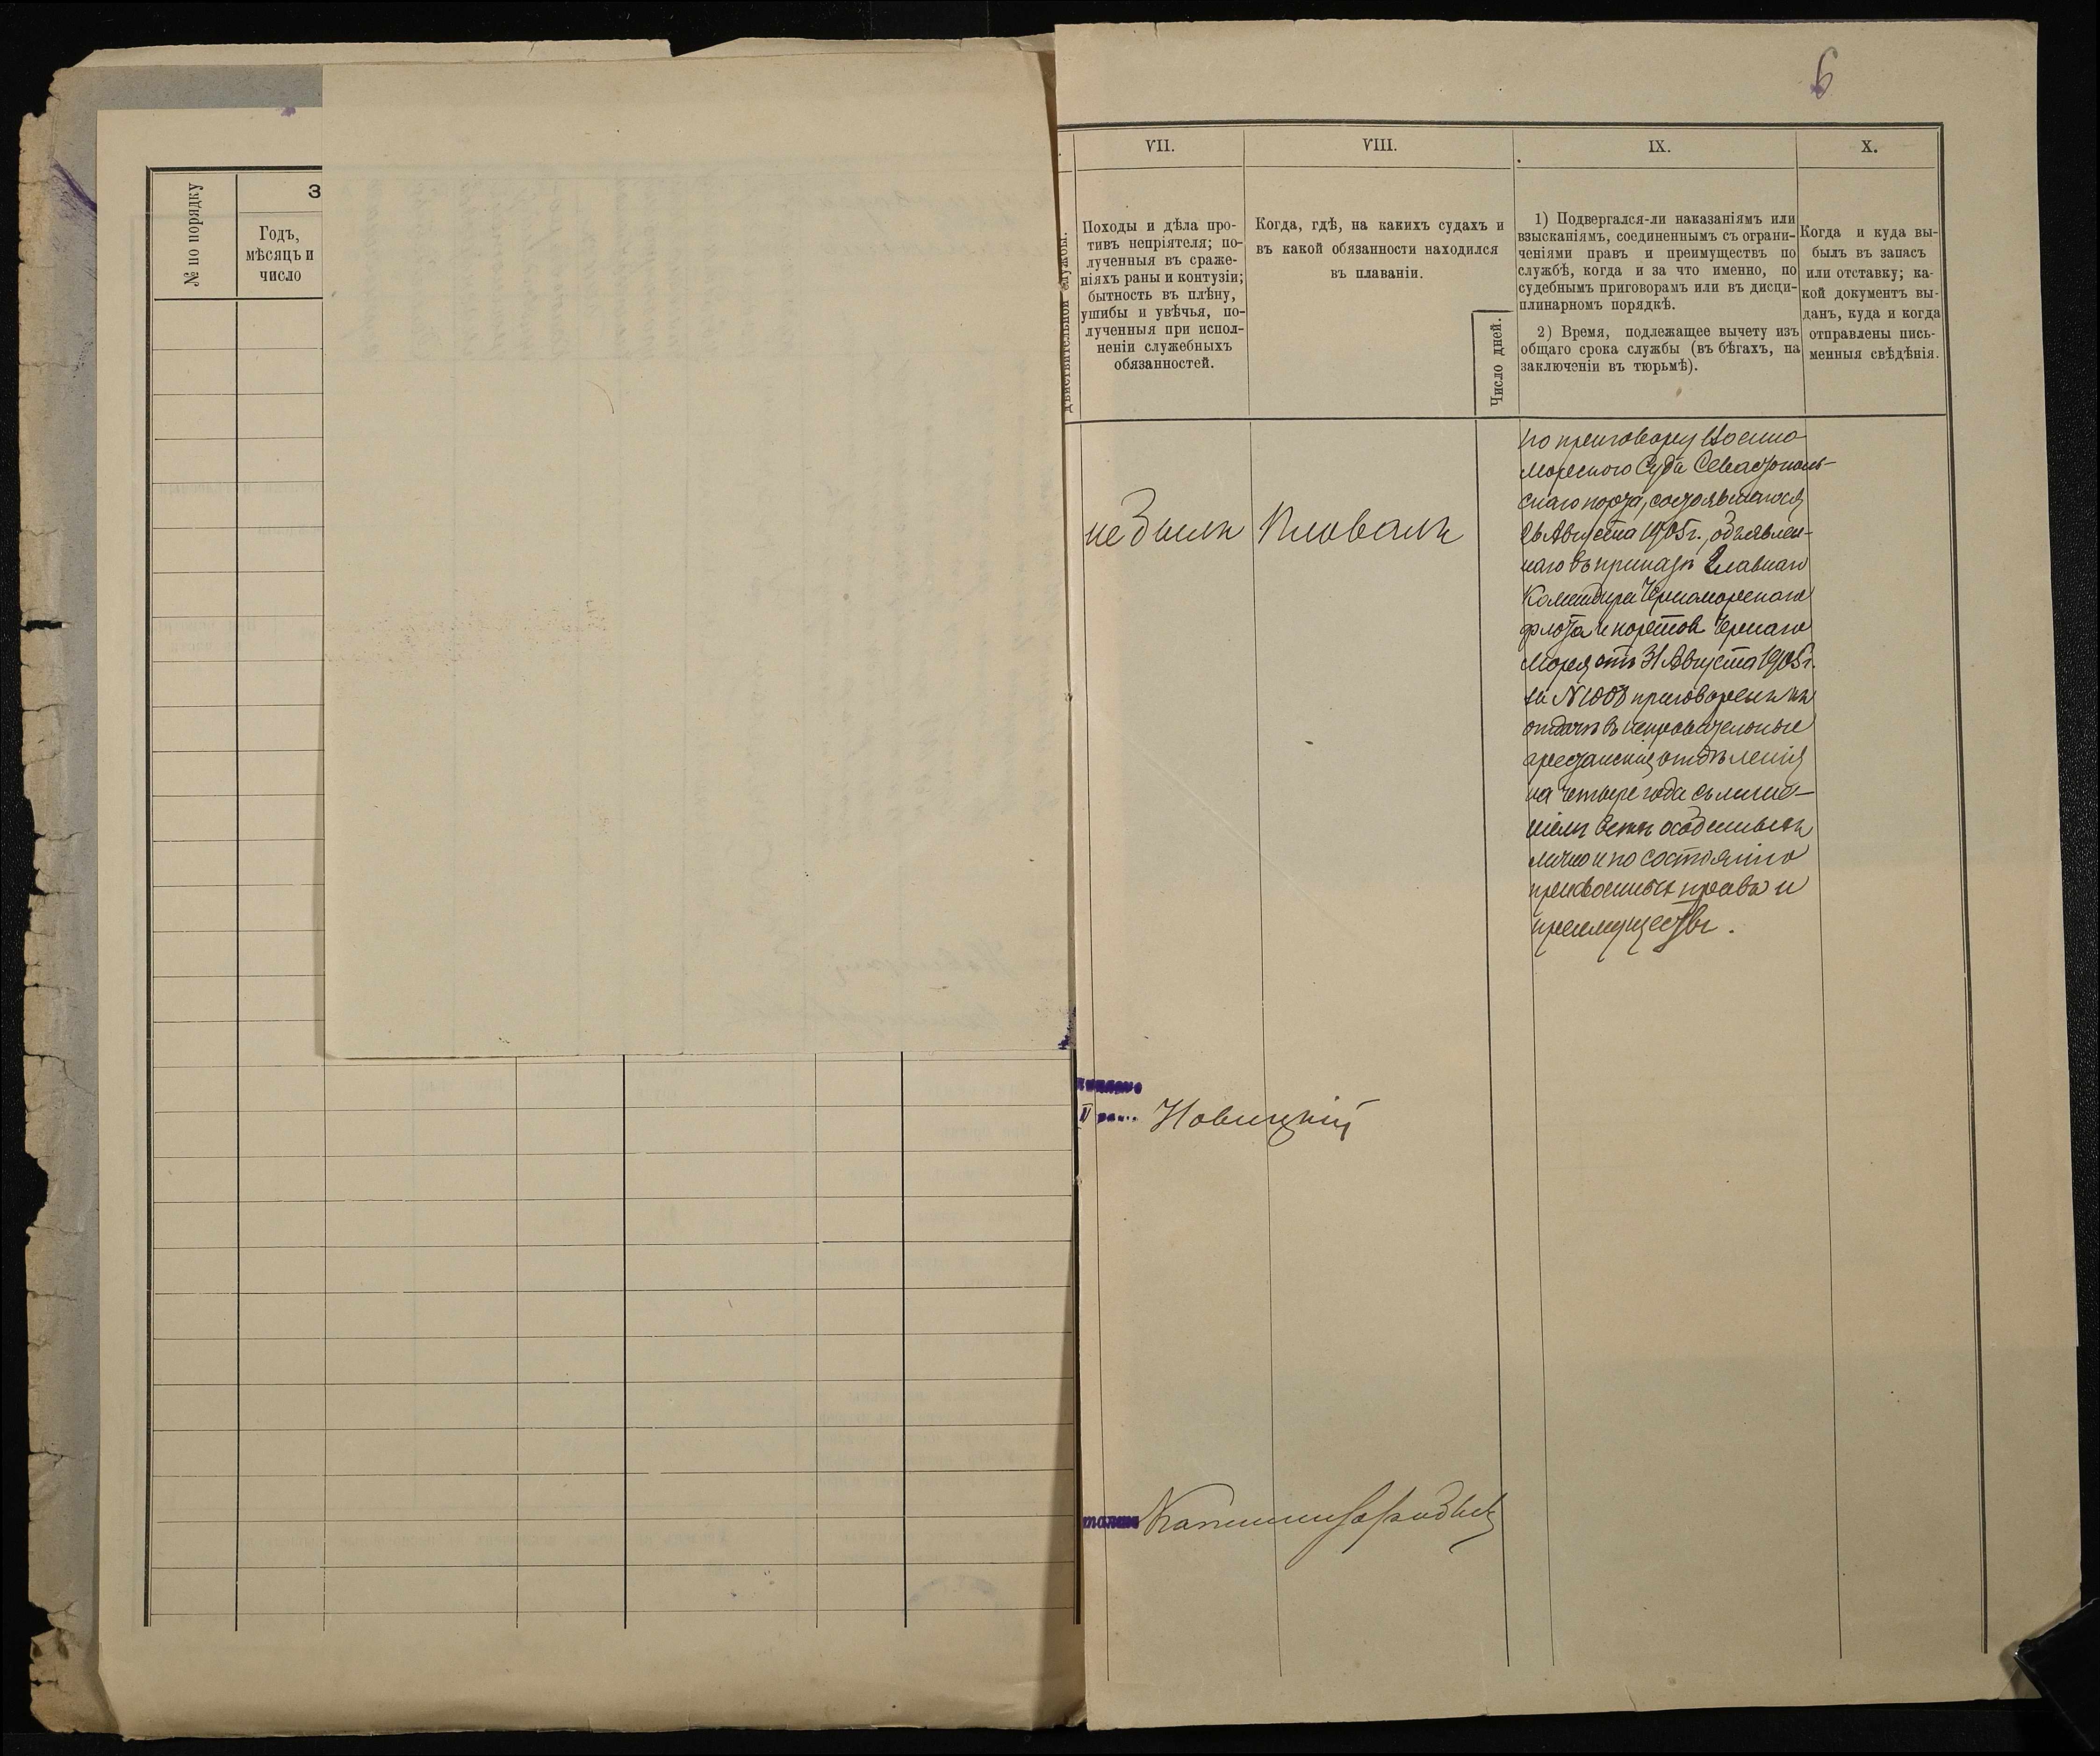 6
№ по порядку
З
Годъ,
мѣсяцъ и
число
дѣйствительной службы.
VII.
Походы и дѣла про-
тивъ непріятеля; по-
лученныя въ сраже-
ніяхъ раны и контузіи;
бытность въ плѣну,
ушибы и увѣчья, по-
лученныя при испол-
неніи служебныхъ
обязанностей.
VIII.
Когда, гдѣ, на какихъ судахъ и
въ какой обязанности находился
въ плаваніи.
Число дней.
IX.
1) Подвергался-ли наказаніямъ или
взысканіямъ, соединеннымъ съ ограни-
ченіями правъ и преимуществъ по
службѣ, когда и за что именно, по
судебнымъ приговорамъ или въ дисци-
плинарномъ порядкѣ.
2) Время, подлежащее вычету изъ
общаго срока службы (въ бѣгахъ, на
заключеніи въ тюрьмѣ).
X.
Когда и куда вы-
былъ въ запасъ
или отставку; ка-
кой документъ вы-
данъ, куда и когда
отправлены пись-
менныя свѣдѣнія.
не былъ
Плавалъ
по приговору Военно-
морского Суда Севастополь-
скаго порта, состоявшагося
26 Августа 1905 г., объявлен-
наго въ приказѣ Главнаго
Командира Черноморскаго
флота и портовъ Чернаго
моря отъ 31 Августа 1905 г.
за № 1003 приговоренъ къ
отдачѣ въ исправительныя
арестанскія отдѣленія
на четыре года съ лише-
ніемъ всѣхъ особенныхъ
лично и по состоянію
присвоенныхъ правъ и
преимуществъ.
Новицкій